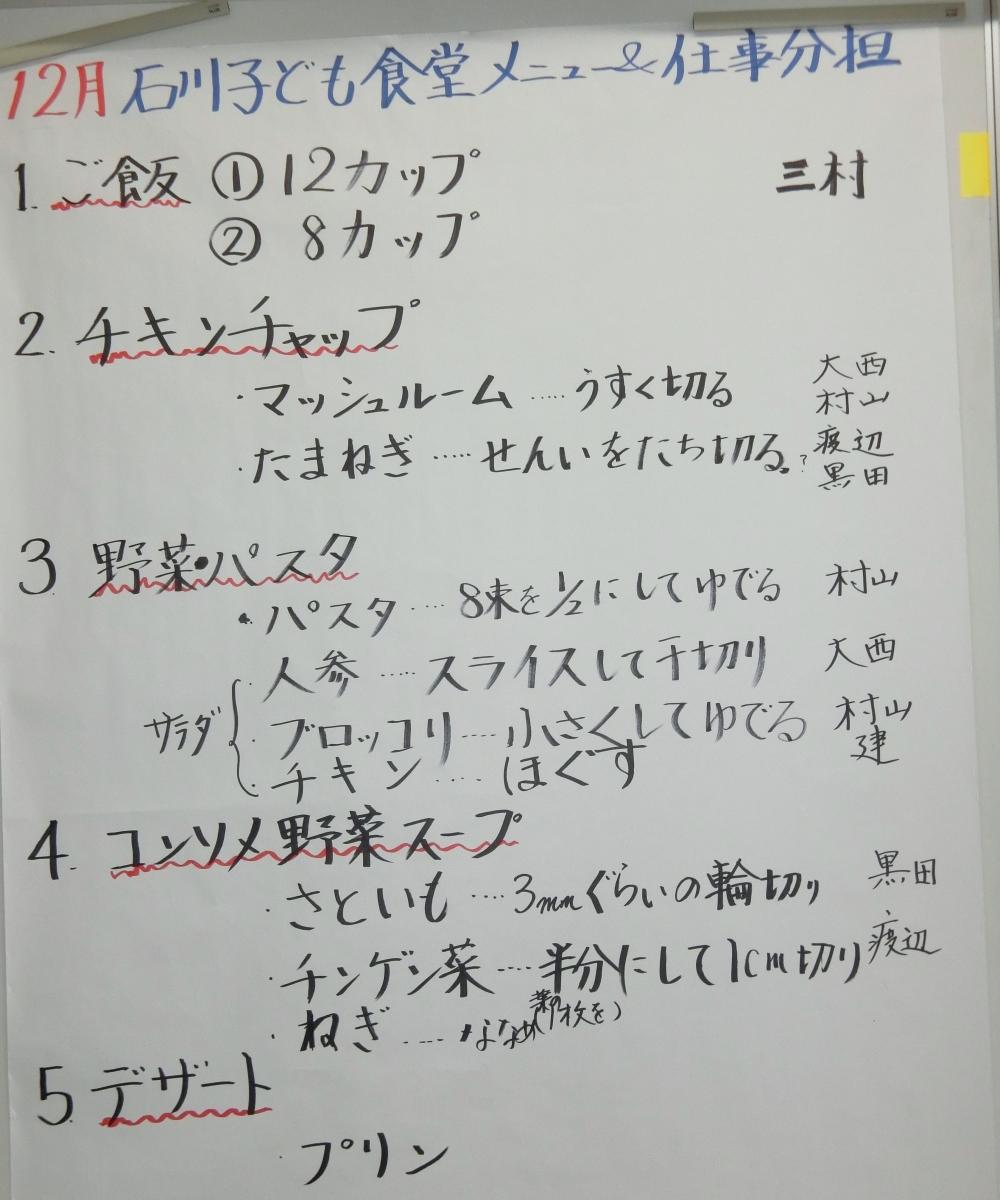 12月 石川子ども食堂メニュー&仕事分担
1. ご飯 ① 12カップ 三村
② 8カップ
2. チキンチャップ
・マッシュルーム ‥‥ うすく切る 大西 村山
・たまねぎ ‥‥ せんいをたち切る。? 渡辺 黒田
3 野菜・パスタ
・パスタ ‥‥ 8束を1/2にしてゆでる 村山
サラダ
・人参 ‥‥ スライスして千切り 大西
・ブロッコリ ‥‥ 小さくしてゆでる 村山 建
・チキン ‥‥ ほぐす
4. コンソメ野菜スープ
・さといも ‥‥ 3mmぐらいの輪切り 黒田
・チンゲン菜 ‥‥ 半分にして1cm切り 渡辺
・ねぎ ‥‥ ななめ
5. デザート
・プリン